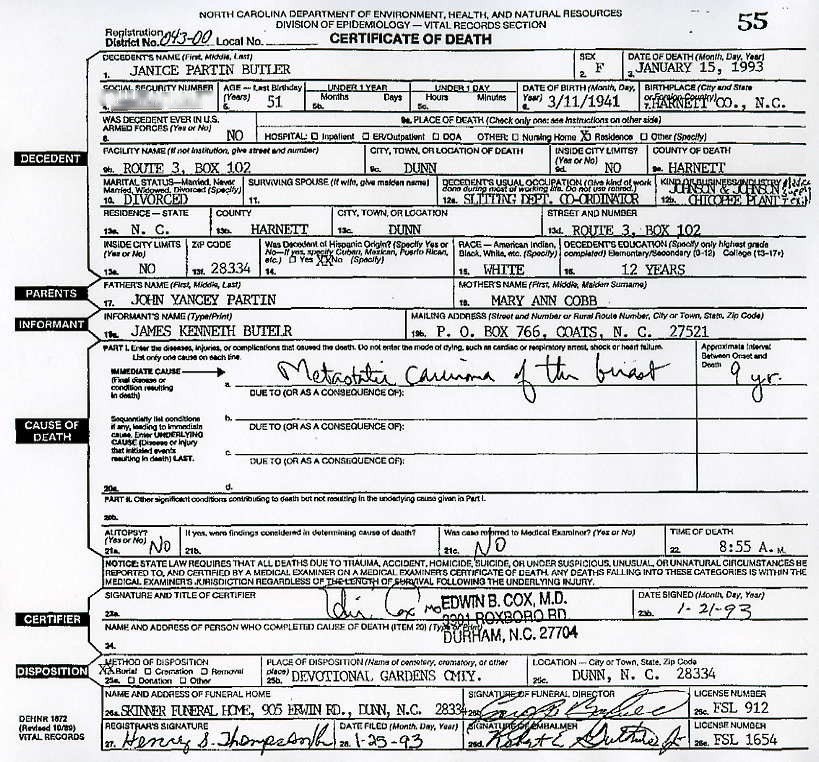 NORTH CAROLINA DEPARTMENT OF ENVIRONMENT, HEALTH, AND NATURAL RESOURCES
DIVISION OF EPIDEMIOLOGY — VITAL RECORDS SECTION
55
Registration District No. 043-00 Local No.
CERTIFICATE OF DEATH
DECEDENT
DECEDENT'S NAME (First, Middle, Last)
1. JANICE PARTIN BUTLER
SEX
2. F
DATE OF DEATH (Month, Day, Year)
3. JANUARY 15, 1993
SOCIAL SECURITY NUMBER
4.
AGE — Last Birthday (Years)
5. 51
UNDER 1 YEAR
Months Days
5b.
UNDER 1 DAY
Hours Minutes
5c.
DATE OF BIRTH (Month, Day, Year)
6. 3/11/1941
BIRTHPLACE (City and State or Foreign Country)
7. HARNETT CO., N.C.
WAS DECEDENT EVER IN U.S. ARMED FORCES (Yes or No)
8. NO
9a. PLACE OF DEATH (Check only one: see instructions on other side)
HOSPITAL: ☐ Inpatient ☐ ER/Outpatient ☐ DOA OTHER: ☐ Nursing Home X Residence ☐ Other (Specify)
FACILITY NAME (If not institution, give street and number)
9b. ROUTE 3, BOX 102
CITY, TOWN, OR LOCATION OF DEATH
9c. DUNN
INSIDE CITY LIMITS? (Yes or No)
9d. NO
COUNTY OF DEATH
9e. HARNETT
MARITAL STATUS—Married, Never Married, Widowed, Divorced (Specify)
10. DIVORCED
SURVIVING SPOUSE (If wife, give maiden name)
11.
DECEDENT'S USUAL OCCUPATION (Give kind of work done during most of working life. Do not use retired.)
12a. SLITTING DEPT. CO-ORDINATOR
KIND OF BUSINESS/INDUSTRY
JOHNSON & JOHNSON
12b. CHICOPEE PLANT
RESIDENCE — STATE
13a. N. C.
COUNTY
13b. HARNETT
CITY, TOWN, OR LOCATION
13c. DUNN
STREET AND NUMBER
13d. ROUTE 3, BOX 102
INSIDE CITY LIMITS (Yes or No)
13e. NO
ZIP CODE
13f. 28334
Was Decedent of Hispanic Origin? (Specify Yes or No—If yes, specify Cuban, Mexican, Puerto Rican, etc.) ☐ Yes XX No (Specify)
14.
RACE — American Indian, Black, White, etc. (Specify)
15. WHITE
DECEDENT'S EDUCATION (Specify only highest grade completed) Elementary/Secondary (0-12) College (13-17+)
16. 12 YEARS
PARENTS
FATHER'S NAME (First, Middle, Last)
17. JOHN YANCEY PARTIN
MOTHER'S NAME (First, Middle, Maiden Surname)
18. MARY ANN COBB
INFORMANT
INFORMANT'S NAME (Type/Print)
19a. JAMES KENNETH BUTELR
MAILING ADDRESS (Street and Number or Rural Route Number, City or Town, State, Zip Code)
19b. P. O. BOX 766, COATS, N. C. 27521
CAUSE OF DEATH
PART I. Enter the diseases, injuries, or complications that caused the death. Do not enter the mode of dying, such as cardiac or respiratory arrest, shock or heart failure.
List only one cause on each line.
Approximate Interval Between Onset and Death
IMMEDIATE CAUSE
(Final disease or condition resulting in death)
a. Metastatic carcinoma of the breast
9 yr.
DUE TO (OR AS A CONSEQUENCE OF):
Sequentially list conditions if any, leading to immediate cause. Enter UNDERLYING CAUSE (Disease or injury that initiated events resulting in death) LAST.
b.
DUE TO (OR AS A CONSEQUENCE OF):
c.
DUE TO (OR AS A CONSEQUENCE OF):
20a. d.
PART II. Other significant conditions contributing to death but not resulting in the underlying cause given in Part I.
20b.
AUTOPSY? (Yes or No)
21a. NO
If yes, were findings considered in determining cause of death?
21b.
Was case referred to Medical Examiner? (Yes or No)
21c. NO
TIME OF DEATH
22. 8:55 A. M.
NOTICE: STATE LAW REQUIRES THAT ALL DEATHS DUE TO TRAUMA, ACCIDENT, HOMICIDE, SUICIDE, OR UNDER SUSPICIOUS, UNUSUAL, OR UNNATURAL CIRCUMSTANCES BE
REPORTED TO, AND CERTIFIED BY A MEDICAL EXAMINER ON A MEDICAL EXAMINER'S CERTIFICATE OF DEATH. ANY DEATHS FALLING INTO THESE CATEGORIES IS WITHIN THE
MEDICAL EXAMINER'S JURISDICTION REGARDLESS OF THE LENGTH OF SURVIVAL FOLLOWING THE UNDERLYING INJURY.
CERTIFIER
SIGNATURE AND TITLE OF CERTIFIER
23a. Cox MD
EDWIN B. COX, M.D.
3901 ROXBORO RD
DURHAM, N.C. 27704
DATE SIGNED (Month, Day, Year)
23b. 1-21-93
NAME AND ADDRESS OF PERSON WHO COMPLETED CAUSE OF DEATH (ITEM 20) (Type or Print)
24.
DISPOSITION
METHOD OF DISPOSITION
XX Burial ☐ Cremation ☐ Removal
25a. ☐ Donation ☐ Other
PLACE OF DISPOSITION (Name of cemetery, crematory, or other place)
25b. DEVOTIONAL GARDENS CMTY.
LOCATION — City or Town, State, Zip Code
25c. DUNN, N. C. 28334
NAME AND ADDRESS OF FUNERAL HOME
26a. SKINNER FUNERAL HOME, 905 ERWIN RD., DUNN, N.C. 28334
SIGNATURE OF FUNERAL DIRECTOR
26b.
LICENSE NUMBER
26c. FSL 912
DEHNR 1872
(Revised 10/89)
VITAL RECORDS
REGISTRAR'S SIGNATURE
27. Henry S. Thompson
DATE FILED (Month, Day, Year)
28. 1-25-93
SIGNATURE OF EMBALMER
26d. Robert E Guthrie Jr
LICENSE NUMBER
26e. FSL 1654